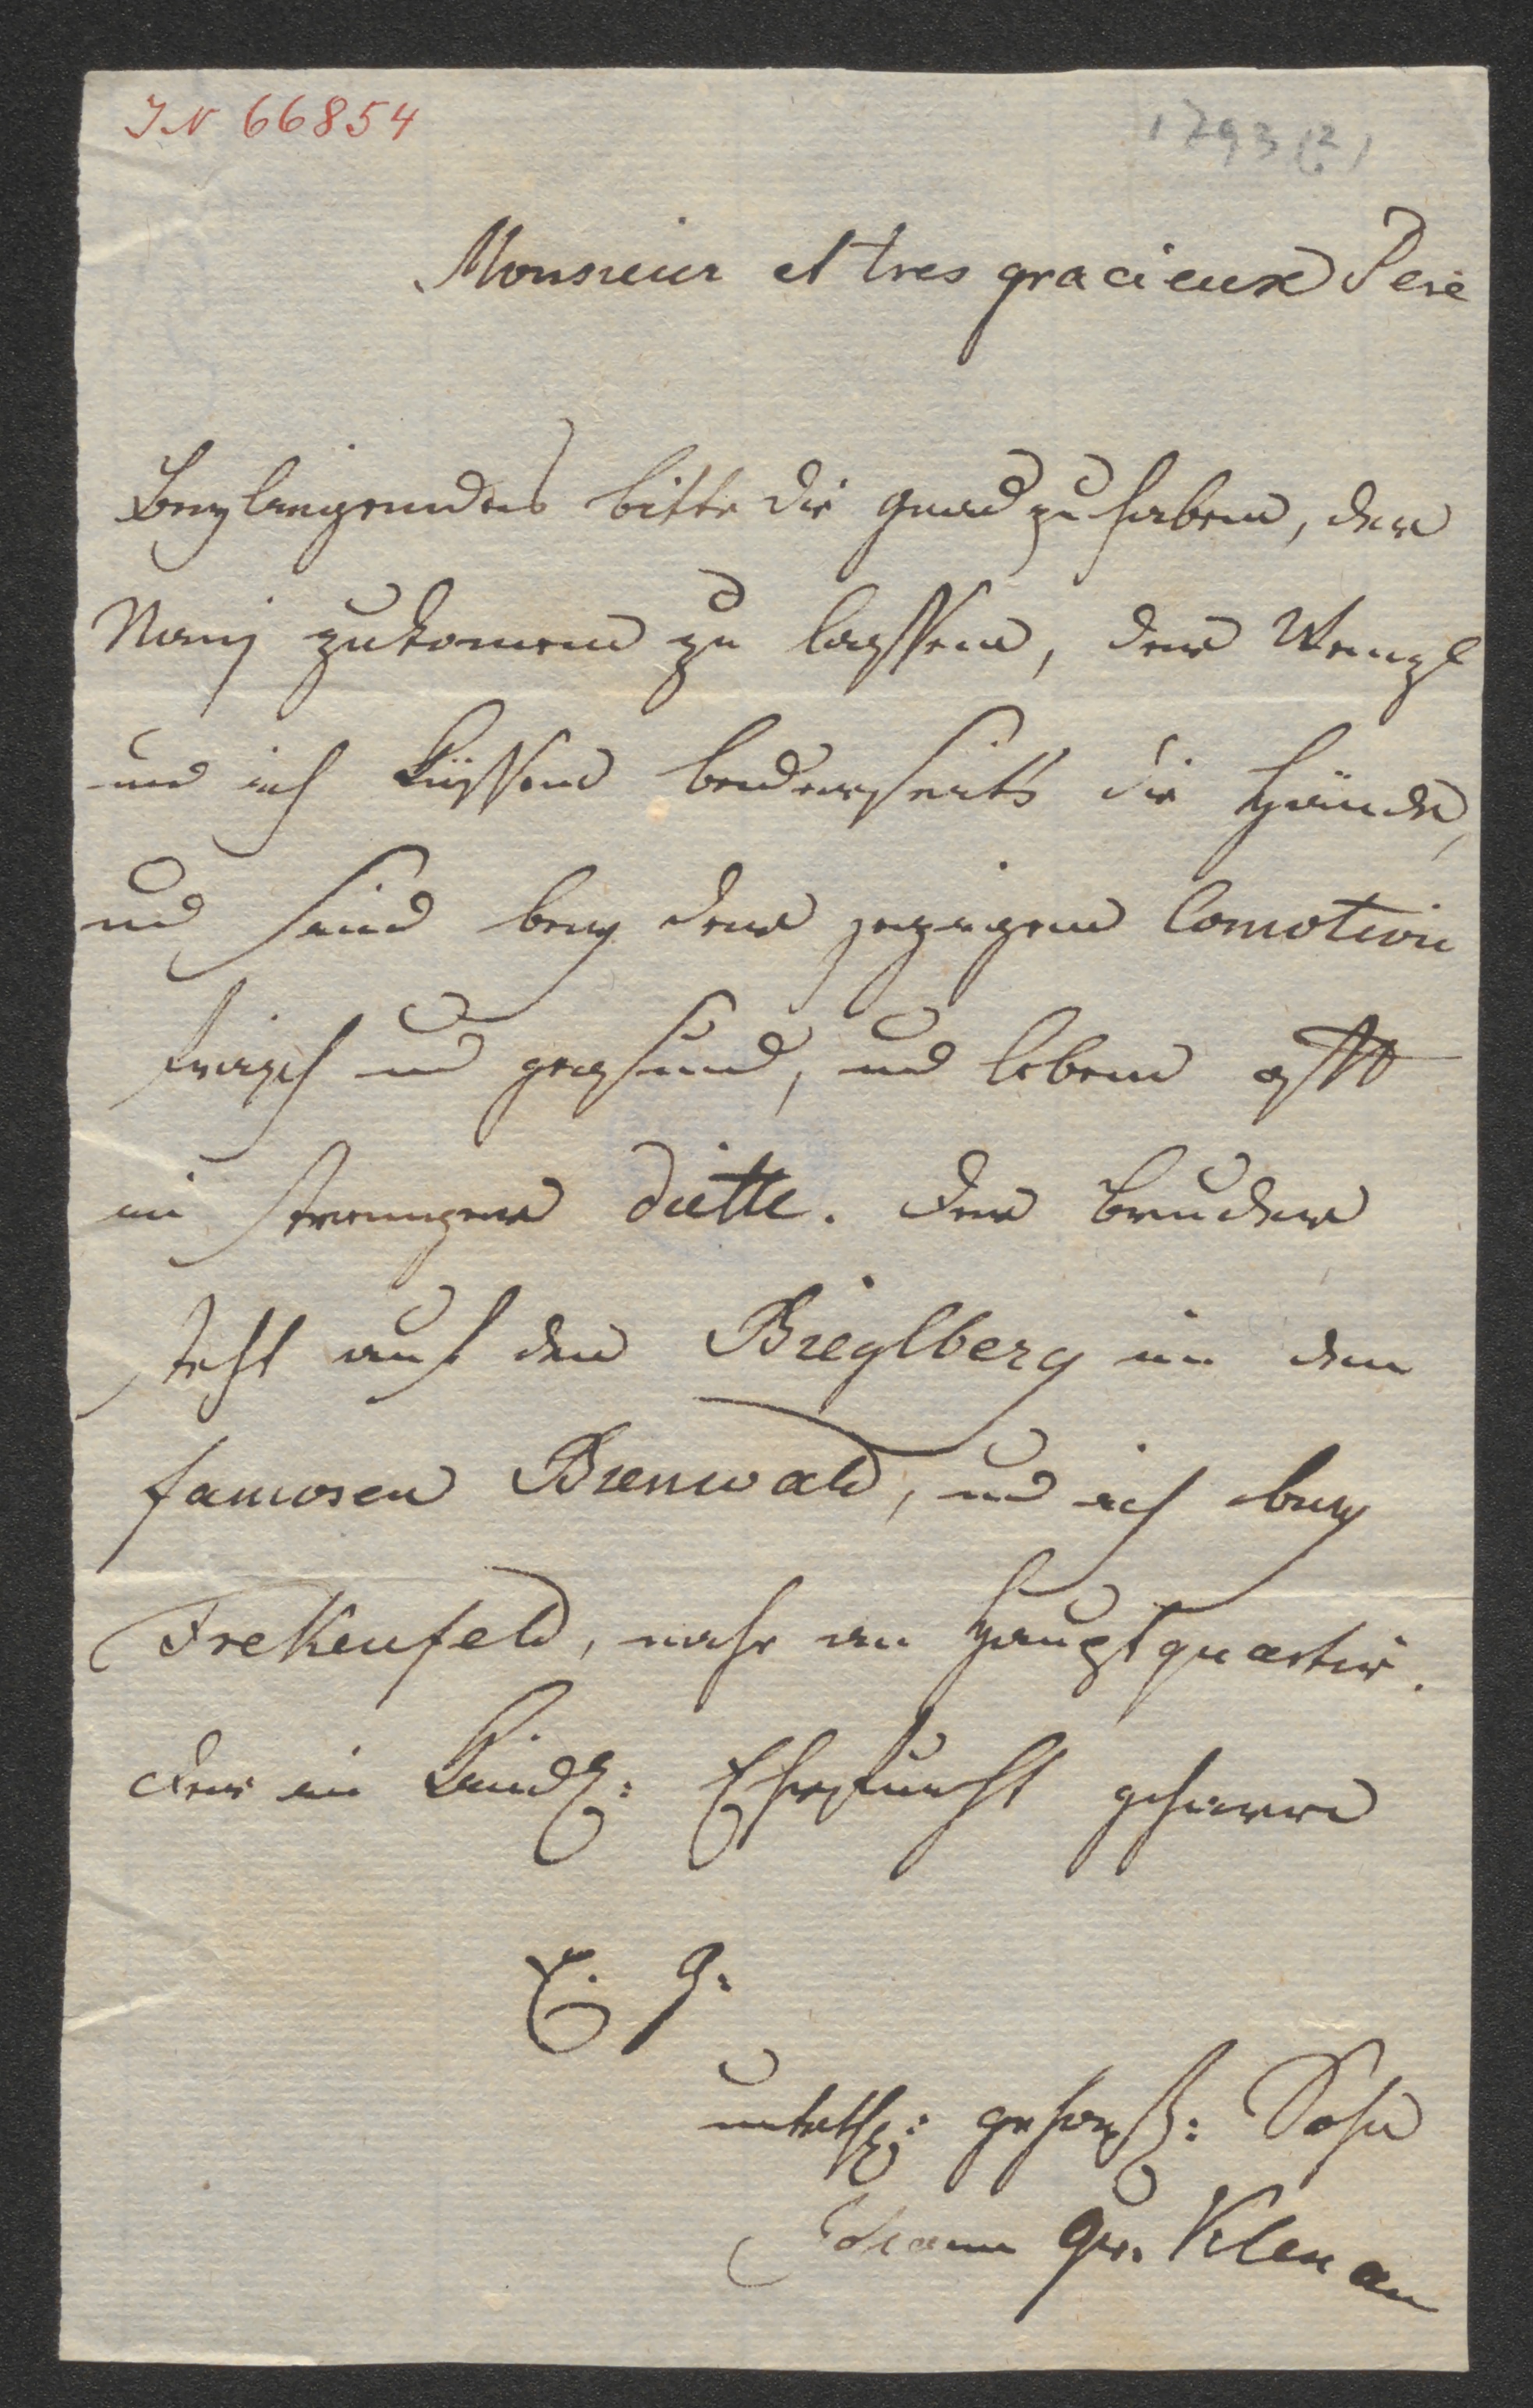 IN 66854
1793 (?)
Monsieur et tres gracieux Pere
Beyliegendes bitte die gnad zu haben, der
Nani zukomen zu lassen, der Wenzl
und ich küssen beederseits die Hände,
und sind bey den jezigen Comotion
frisch und gesund, und leben oft
in strenger diette. Der Bruder
steht auf den Bieglberg in dem
famosen Bienwald, und ich bey
Frekenfeld, nahe an Hauptquartir.
Der in Kindl: Ehrfurcht geharre
E. G.
unterth: gehors: Sohn
Johann Gr. Klenau